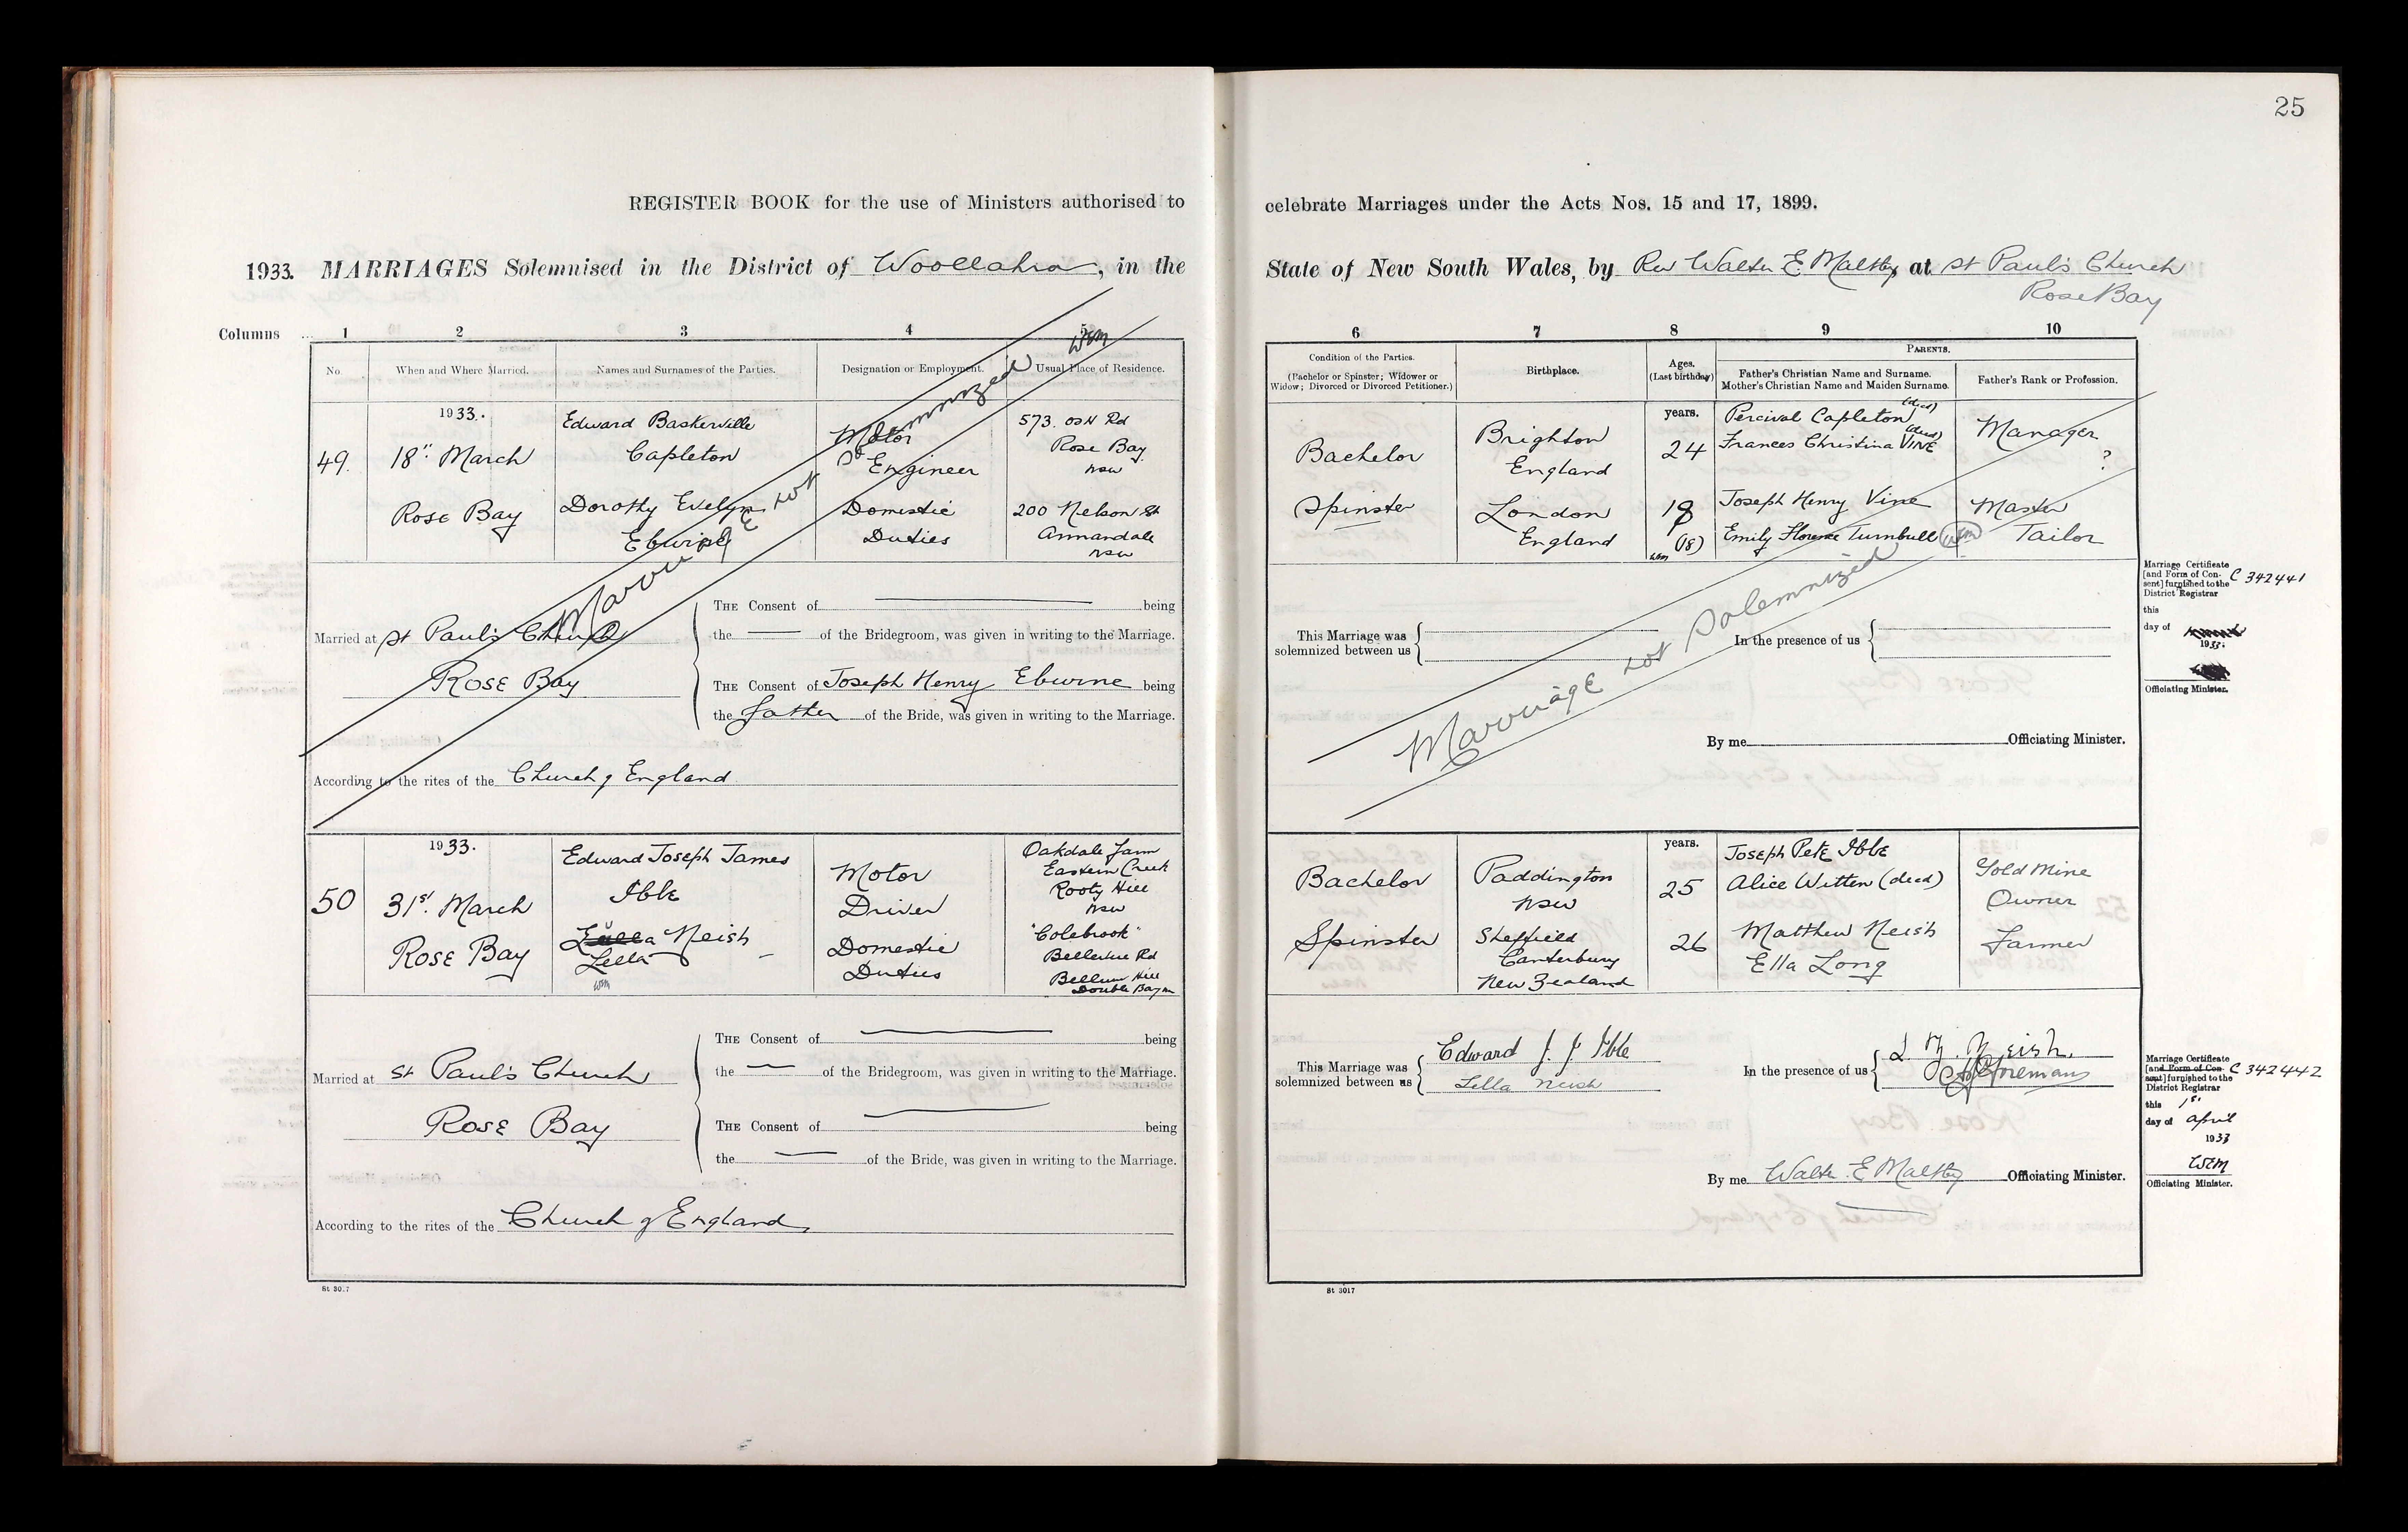 25
REGISTER BOOK for the use of Ministers authorised to
1933. MARRIAGES Solemnised in the District of Woollahra, in the
Columns 1 2 3 4 5
WEM
No. When and Where Married. Names and Surnames of the Parties. Designation or Employment. Usual Place of Residence.
1933. Edward Baskerville Motor 573. OSH Rd
49. 18" March Capleton Engineer Rose Bay
NSW
Rose Bay Dorothy Evelyn Domestic 200 Nelson St
Eburne Duties Annandale
NSW
Marriage not Solemnized
THE Consent of being
Married at St Paul's Church the of the Bridegroom, was given in writing to the Marriage.
Rose Bay THE Consent of Joseph Henry Eburne being
the father of the Bride, was given in writing to the Marriage.
According to the rites of the Church of England
1933. Edward Joseph James Motor Oakdale Farm
50 31st. March Ible Driver Eastern Creek
Rooty Hill
NSW
Rose Bay a Neish Domestic "Colebrook"
Lella Duties Bellevue Rd
WEM Bellevue Hill
Double Bay
THE Consent of being
Married at St Paul's Church the of the Bridegroom, was given in writing to the Marriage.
Rose Bay THE Consent of being
the of the Bride, was given in writing to the Marriage.
According to the rites of the Church of England
St 3017
celebrate Marriages under the Acts Nos. 15 and 17, 1899.
State of New South Wales, by Rev Walter E. Maltby at St Paul's Church
Rose Bay
6 7 8 9 10
Condition of the Parties.
(Bachelor or Spinster; Widower or
Widow; Divorced or Divorced Petitioner.)
Birthplace.
Ages.
(Last birthday)
PARENTS.
Father's Christian Name and Surname.
Mother's Christian Name and Maiden Surname.
Father's Rank or Profession.
years. Percival Capleton (decd)
Bachelor Brighton 24 Frances Christina VINE (decd) Manager
England ?
Spinster London 18 Joseph Henry Vine Master
England WEM (18) Emily Florence Turnbull WEM Tailor
Marriage not Solemnized
This Marriage was
solemnized between us
In the presence of us
By me Officiating Minister.
Marriage Certificate
[and Form of Con-
sent] furnished to the C 342441
District Registrar
this
day of
1933.
Officiating Minister.
years. Joseph Pete Ible
Bachelor Paddington 25 Alice Witten (decd) Gold Mine
NSW Owner
Spinster Sheffield 26 Matthew Neish Farmer
Canterbury Ella Long
New Zealand
This Marriage was Edward J. J. Ible
solemnized between us Lella Neish
In the presence of us L M. Neish.
Foreman
By me Walter E Maltby Officiating Minister.
Marriage Certificate
[and Form of Con-
sent] furnished to the C 342442
District Registrar
this 1st
day of April
1933
WEM
Officiating Minister.
St 3017